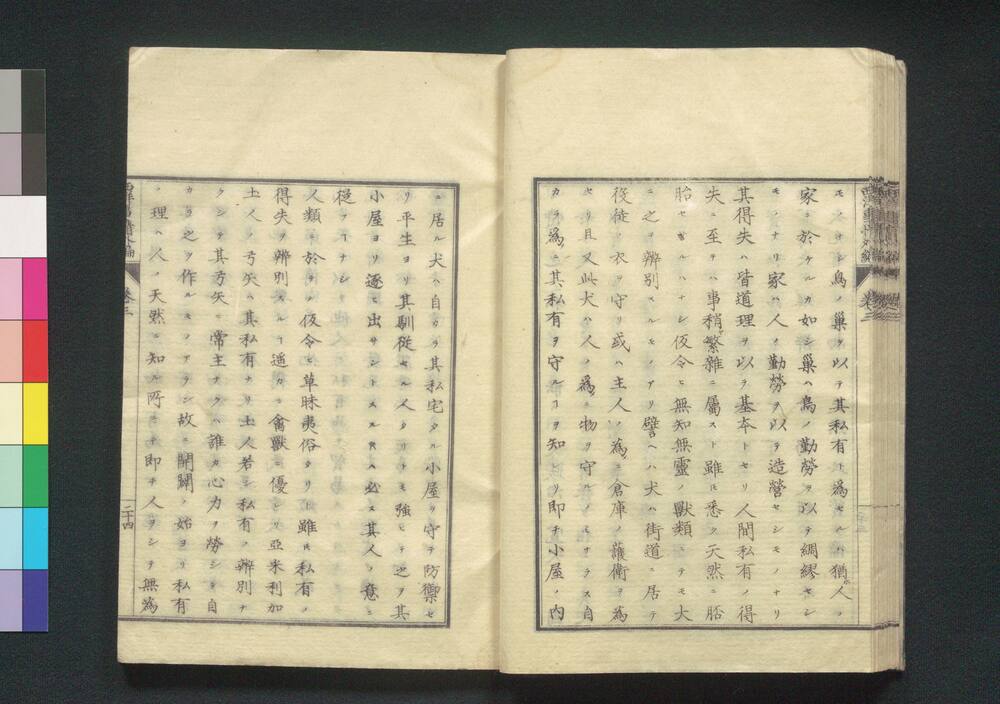 西洋事情外編 卷三
モノナシ鳥ノ巢ヲ以テ其私有ト為セルハ猶人ノ
家ニ於ケルカ如シ巢ハ鳥ノ勤勞ヲ以テ綢繆セシ
モノナリ家ハ人ノ勤勞ヲ以テ造營セシモノナリ
其得失ハ皆道理ヲ以テ基本トセリ人間私有ノ得
失ニ至テハ事稍繁雜ニ屬スト雖𪜈悉ク天然ニ胚
胎セザルハナシ仮令ヒ無知無靈ノ獸類ニテモ大
ニ之ヲ辨別スルモノアリ譬ヘハ犬ハ街道ニ居テ
役徒ノ衣ヲ守リ或ハ主人ノ為ニ倉庫ノ護衛ヲ為
セリ且又此犬ハ人ノ為ニ物ヲ守ルノミナラス自
カラ為ニ其私有ヲ守ルヿヲ知レリ即チ小屋ノ内
ニ居ル犬ハ自カラ其私宅タル小屋ヲ守テ防禦セ
リ平生ヨリ其馴從セル人タリトモ強ヒテ之ヲ其
小屋ヨリ逐ヒ出サントスル𪜈ハ必ス其人ノ意ニ
從フヿナシ
人類ニ於テハ仮令ヒ草昧夷俗タリト雖𪜈私有ノ
得失ヲ辨別スルヿ遥カニ禽獸ニ優レリ亞米利加
土人ノ弓矢ハ其私有ナリ土人若シ私有ノ辨別ナ
クシテ其弓矢ニ常主ナクハ誰カ心力ヲ勞シテ自
カラ之ヲ作ルモノアラン故ニ開闢ノ始ヨリ私有
ノ理ハ人ノ天然ニ知ル所ニテ即チ人ヲシテ無為
西洋事情外編 卷三 二十四